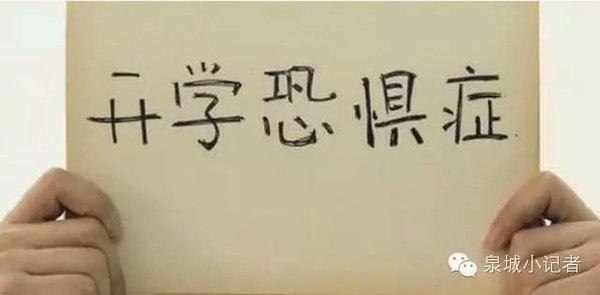 开学恐惧症
泉城小记者